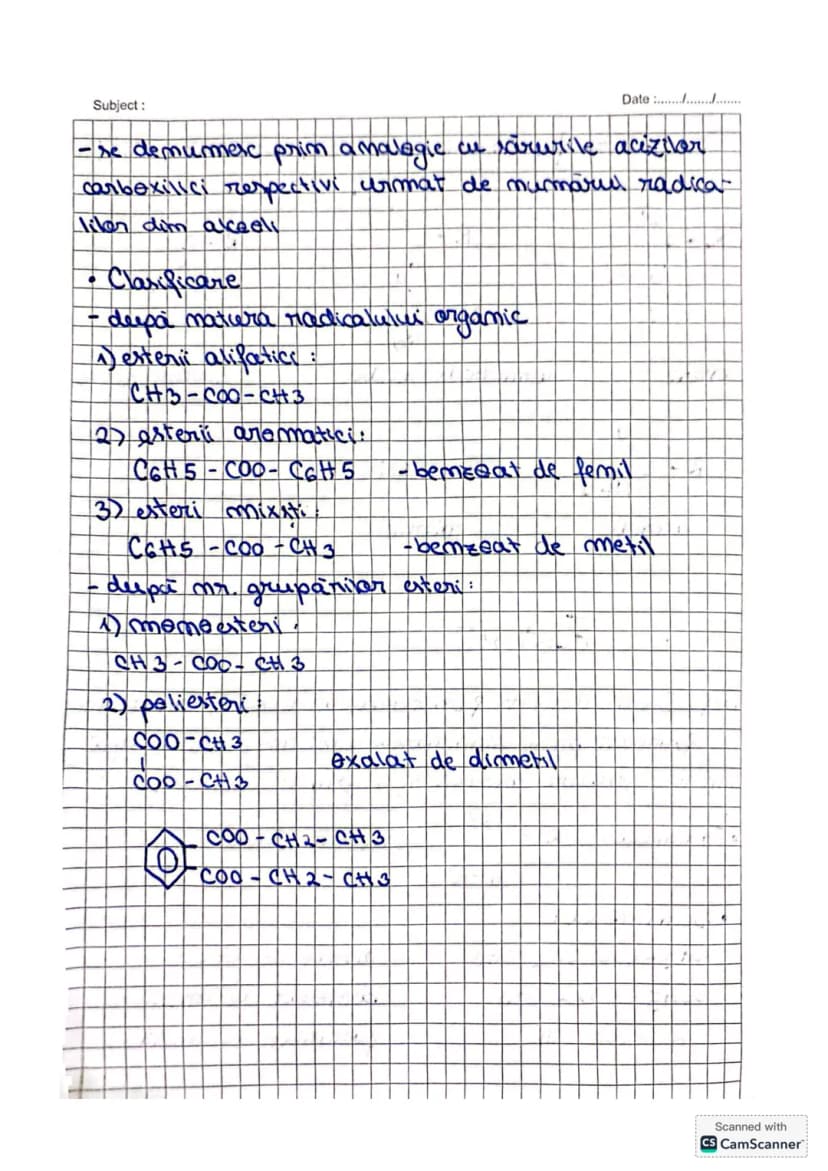 Subject :
Date :......./......./.......
- se denumesc prin analogie cu sărurile acizilor
carboxilici respectivi urmat de numărul radica-
lilor din alcooli
• Clasificare
- după natura radicalului organic
1) esterii alifatici :
CH3 - COO - CH3
2) esterii aromatici :
C6H5 - COO - C6H5 - benzoat de fenil
3) esteri mixti :
C6H5 - COO - CH3 - benzoat de metil
- după nr. grupărilor esteri :
1) monoesteri :
CH3 - COO - CH3
2) poliesteri :
COO - CH3
|
COO - CH3
oxalat de dimetil
COO - CH2 - CH3
COO - CH2 - CH3
Scanned with
CS CamScanner